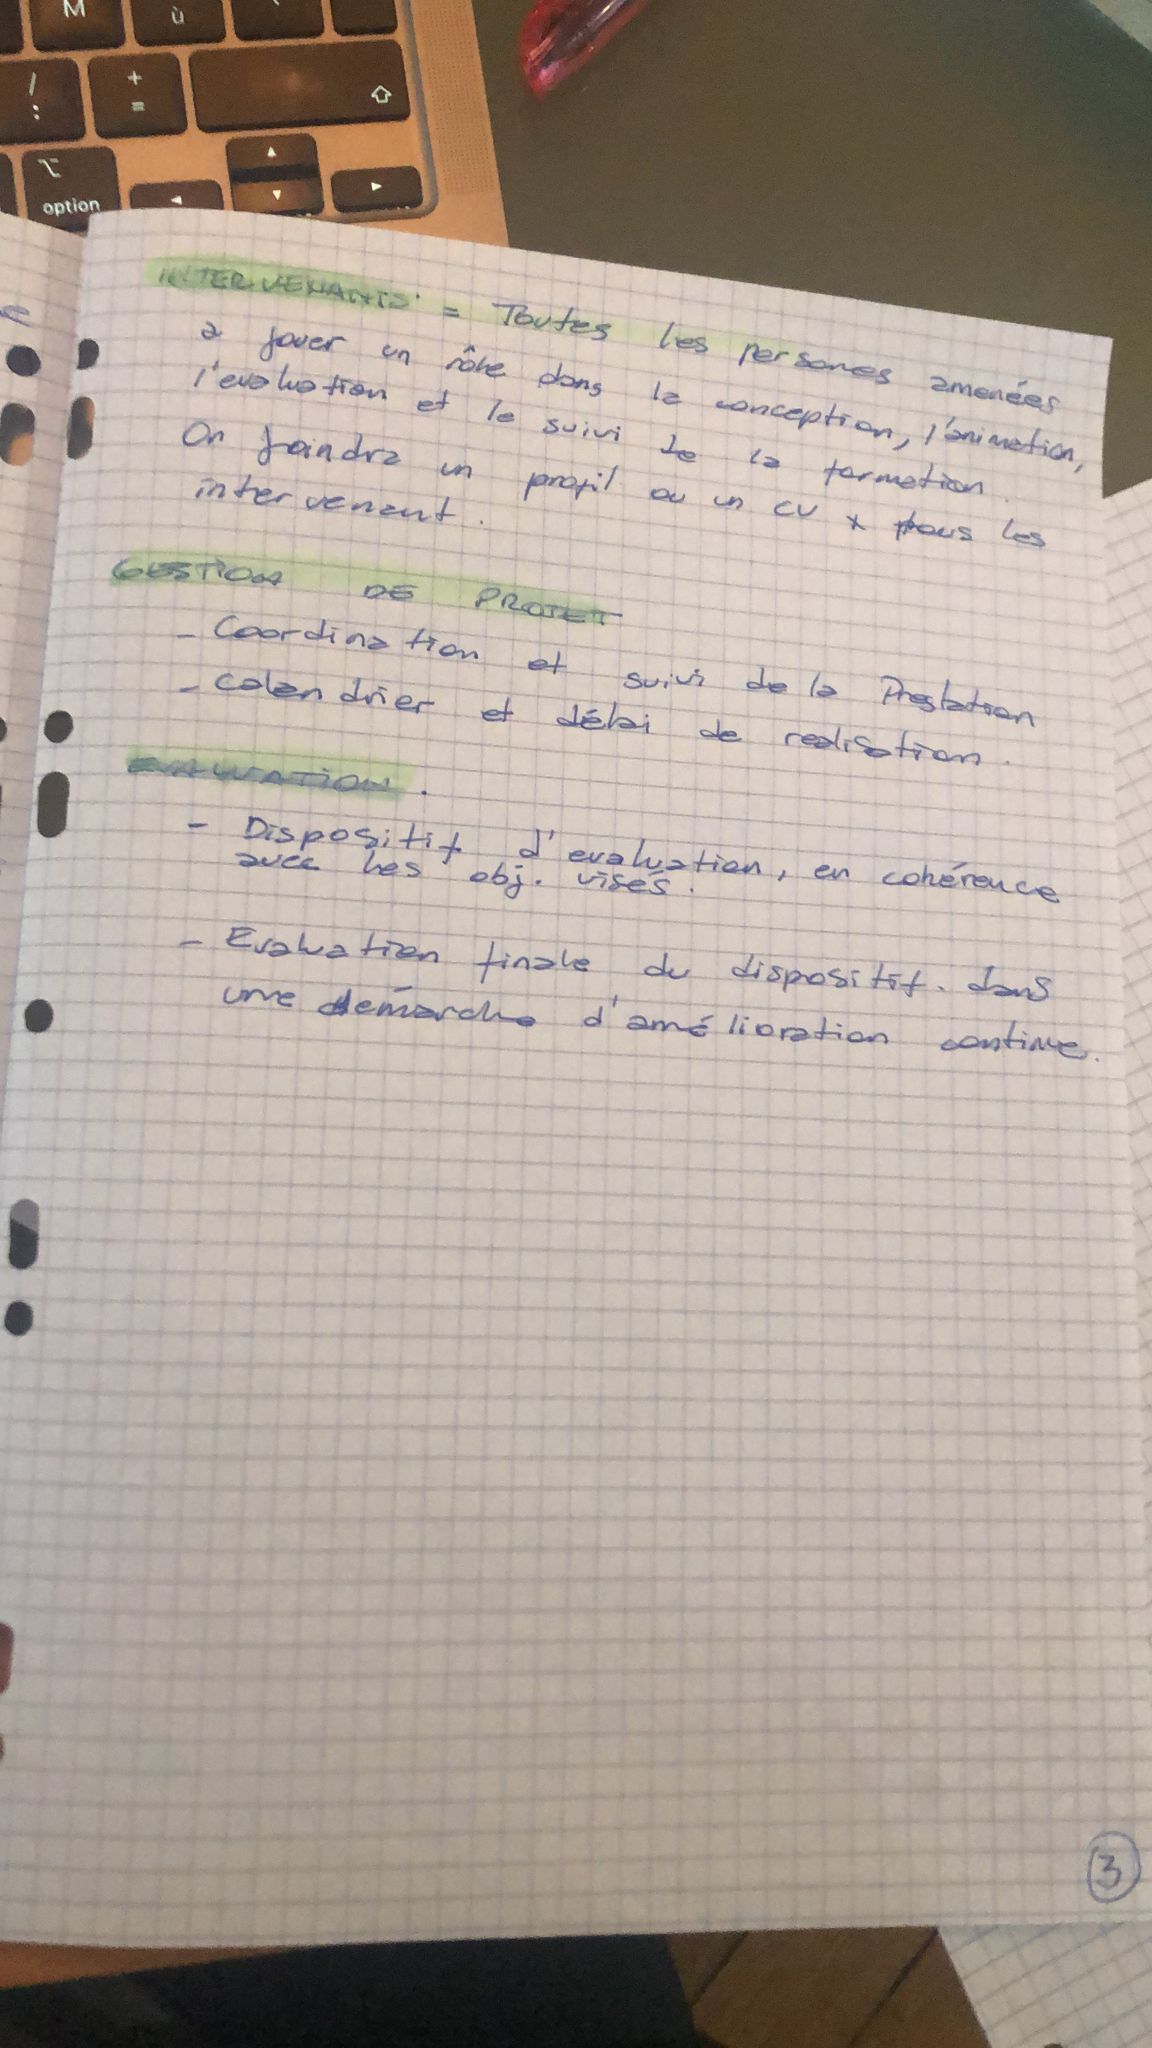 M
ù
`
/
:
+
=
option
INTERVENANTS = Toutes les personnes amenées
à jouer un rôle dans la conception, l'animation,
l'evaluation et le suivi de la formation.
On joindra un profil ou un CV x tous les
intervenant.
GESTION DE PROJET
- Coordination et suivi de la Prestation
- Calendrier et délai de realisation.
EVALUATION.
- Dispositif d'evaluation, en cohérence
avec les obj. visés.
- Evaluation finale du dispositif. dans
une démarche d'amélioration continue.
3